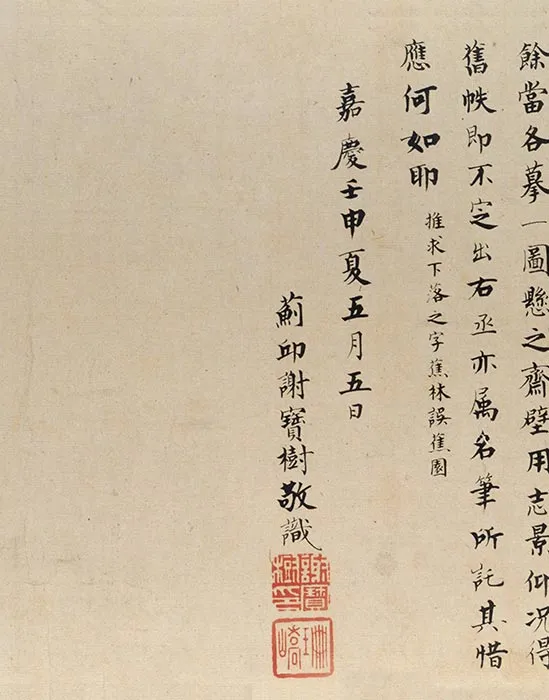 餘當各摹一圖懸之齋壁用志景仰况得
舊帙即不定出右丞亦属名筆所託其惜
應何如耶
推求下落之字蕉林誤蕉園
嘉慶壬申夏五月五日
薊邱謝寶樹敬識
謝寶樹印